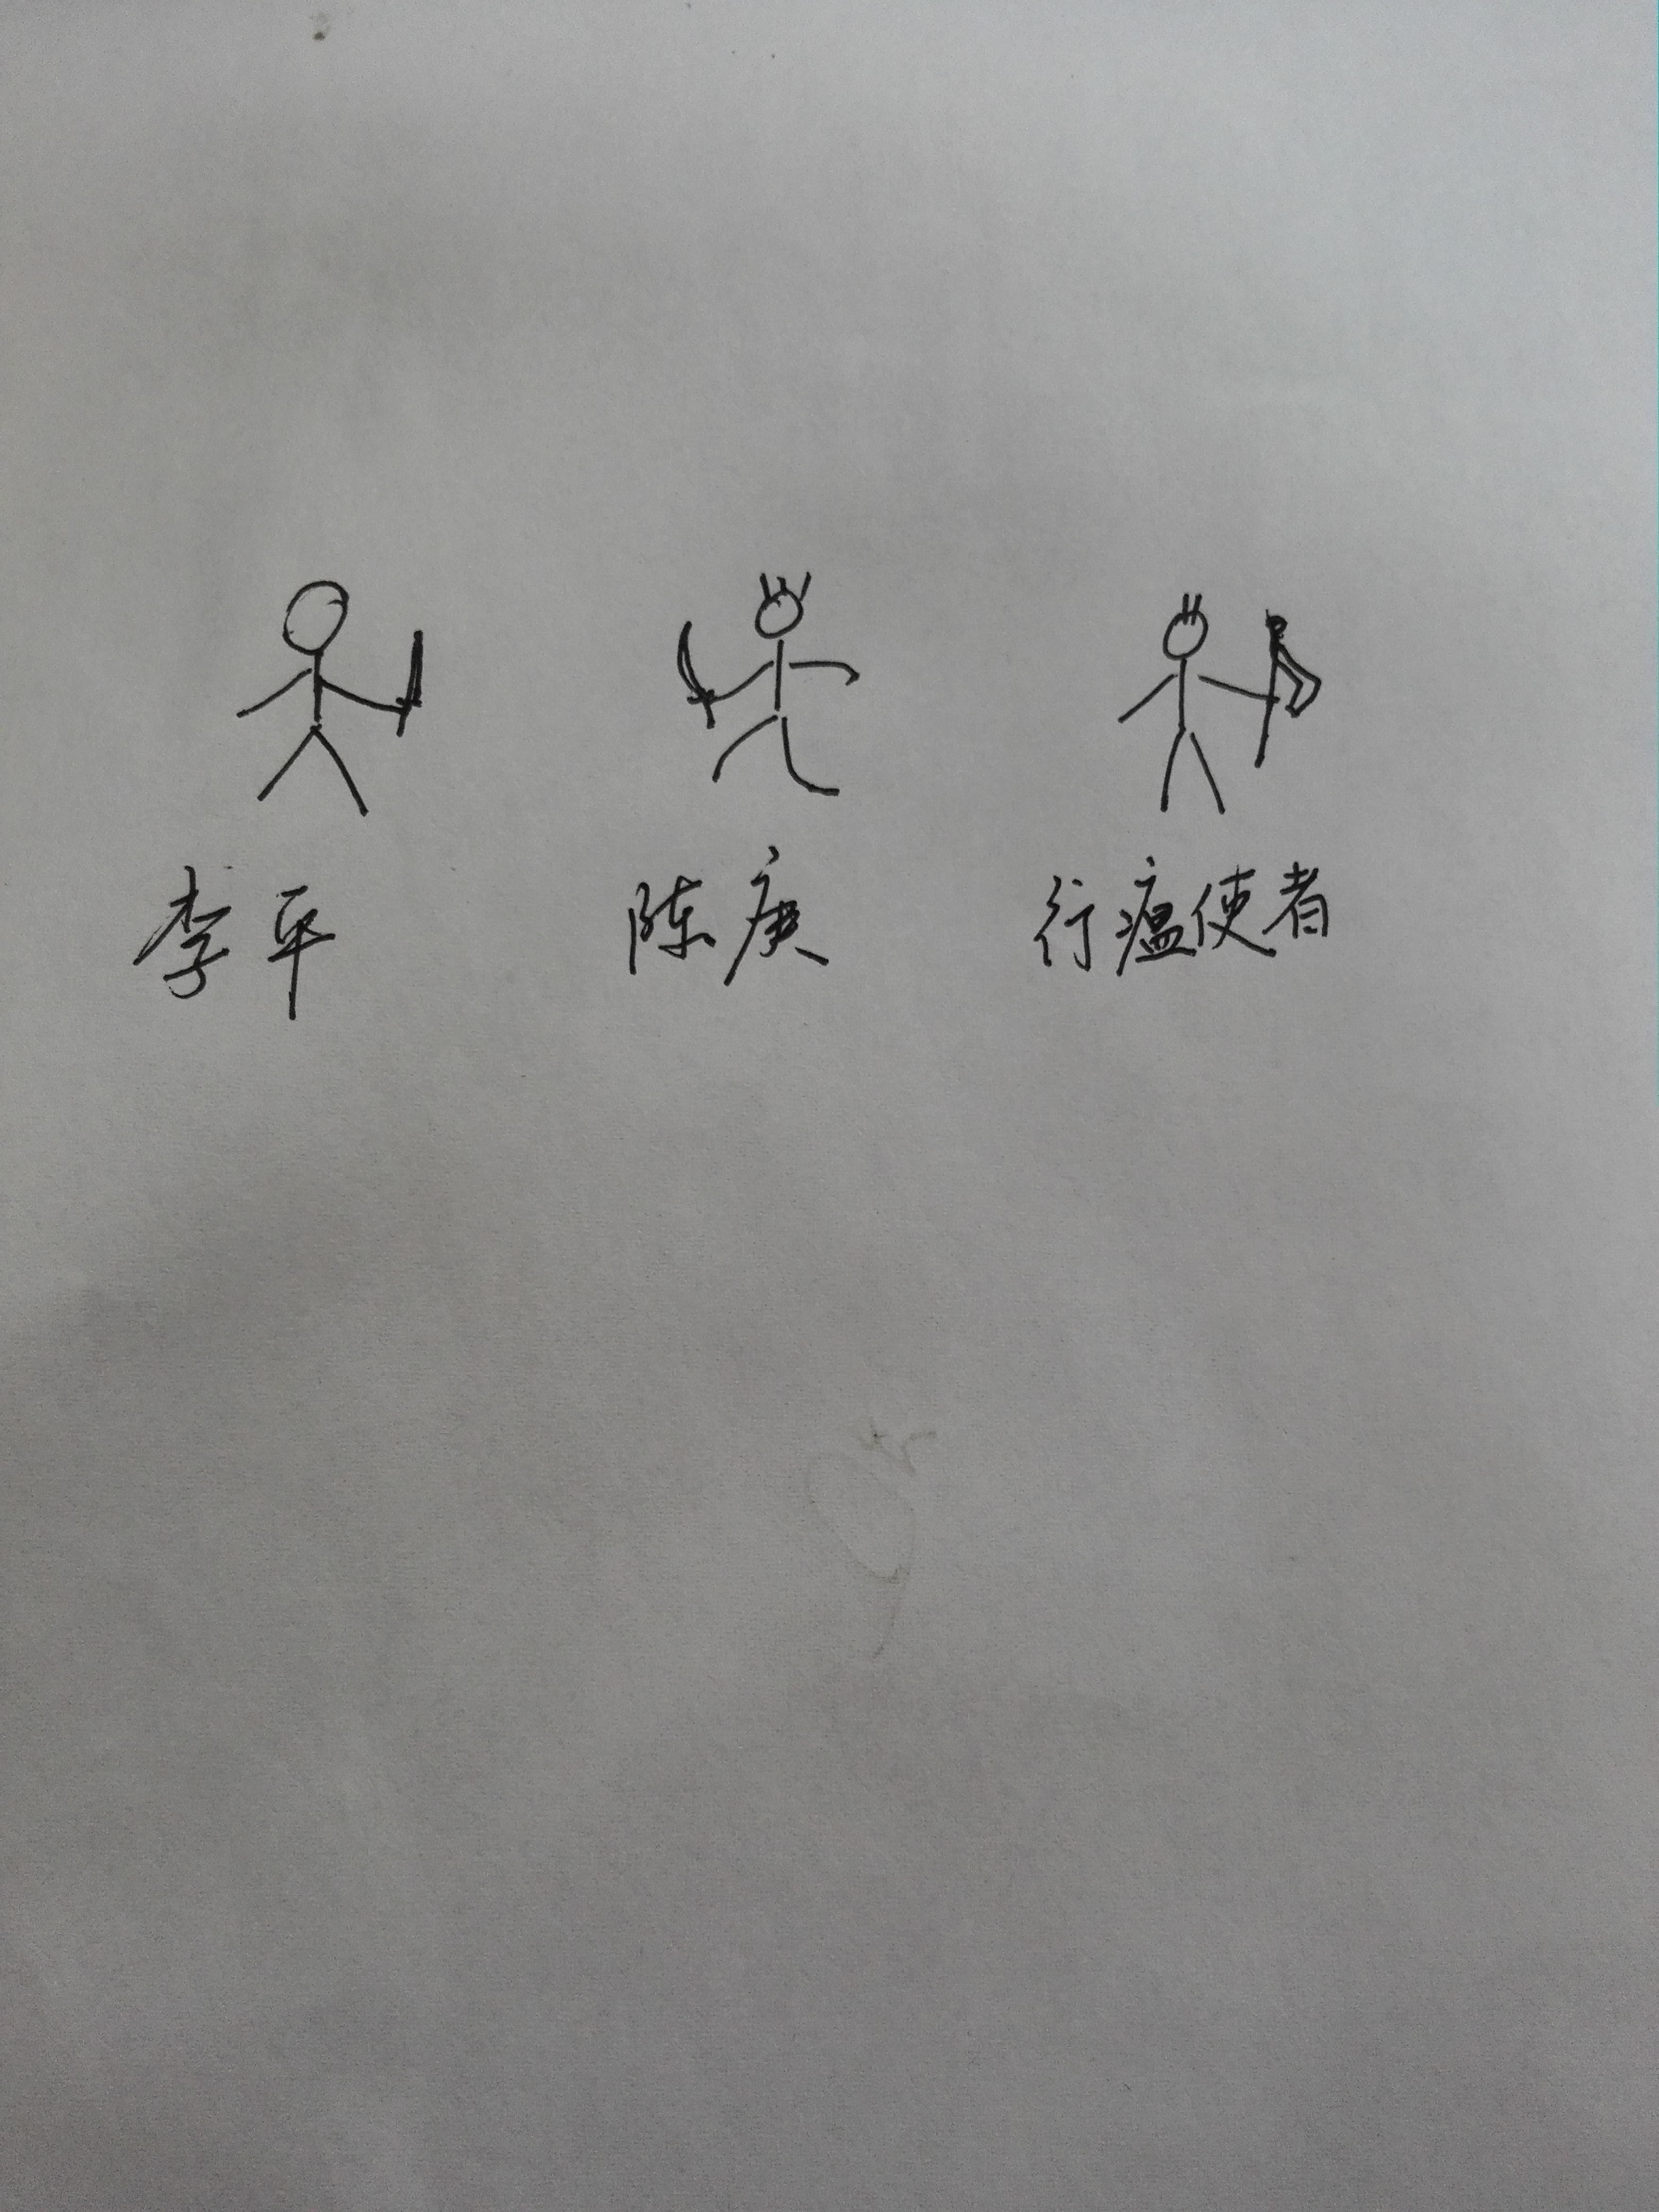 李平 陈庚 行瘟使者